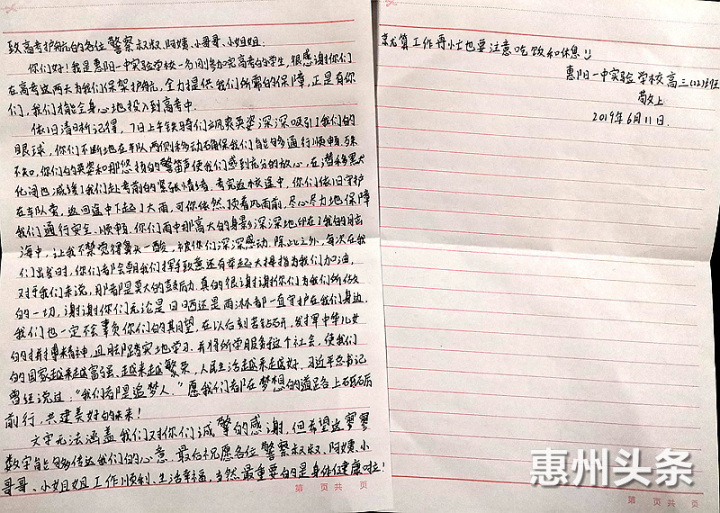 致高考护航的各位警察叔叔、阿姨、小哥哥、小姐姐：
你们好！我是惠阳一中实验学校一名刚参加完高考的学生，很感谢你们
在高考这两天为我们保驾护航，全力提供我们所需的保障，正是有你
们，我们才能全身心地投入到高考中。
依旧清晰记得，7日上午铁骑们立飒爽英姿深深吸引了我们的
眼球，你们不断地在车队两侧移动来确保我们能够通行顺畅。殊
不知，你们的英姿和那悠扬的警声使我们感到充分的放心，在潜移默
化间也减缓了我们赴考前的紧张情绪。考完返校途中，你们依旧守护
在车队旁，返回途中下起了大雨，可你依然顶着风雨前，尽心尽力地保障
我们通行安全、顺畅。你们雨中那高大的身影深深地印在了我的脑
海中，让我不禁觉得鼻头一酸，被你们深深感动。除此之外，每次在我
们出发时，你们都会朝我们挥手致意还有举起大拇指为我们加油，
对于我们来说，那都是莫大的鼓励。真的很谢谢你们为我们所做
的一切，谢谢你们无论是日晒还是雨淋都一直守护在我们身边，
我们也一定不会辜负你们的期望，在以后刻苦钻研，发挥中华儿女
的拼搏精神，且脚踏实地学习，并将所学服务于这个社会，使我们
的国家越来越富强、越来越繁荣，人民生活越来越好。习近平总书记
曾经说过：“我们都是追梦人。”愿我们都在梦想的道路上砥砺
前行，共建美好的未来！
文字无法涵盖我们对你们诚挚的感谢，但希望这寥寥
数字能够传达我们的心意。最后祝愿各位警察叔叔、阿姨、小
哥哥、小姐姐工作顺利、生活幸福，当然最重要的是身体健康啦！
第 页 共 页
就算工作再忙也要注意吃饭和休息！
惠阳一中实验学校高三(12)班
敬上
2019年6月11日
第 页 共 页
惠州头条